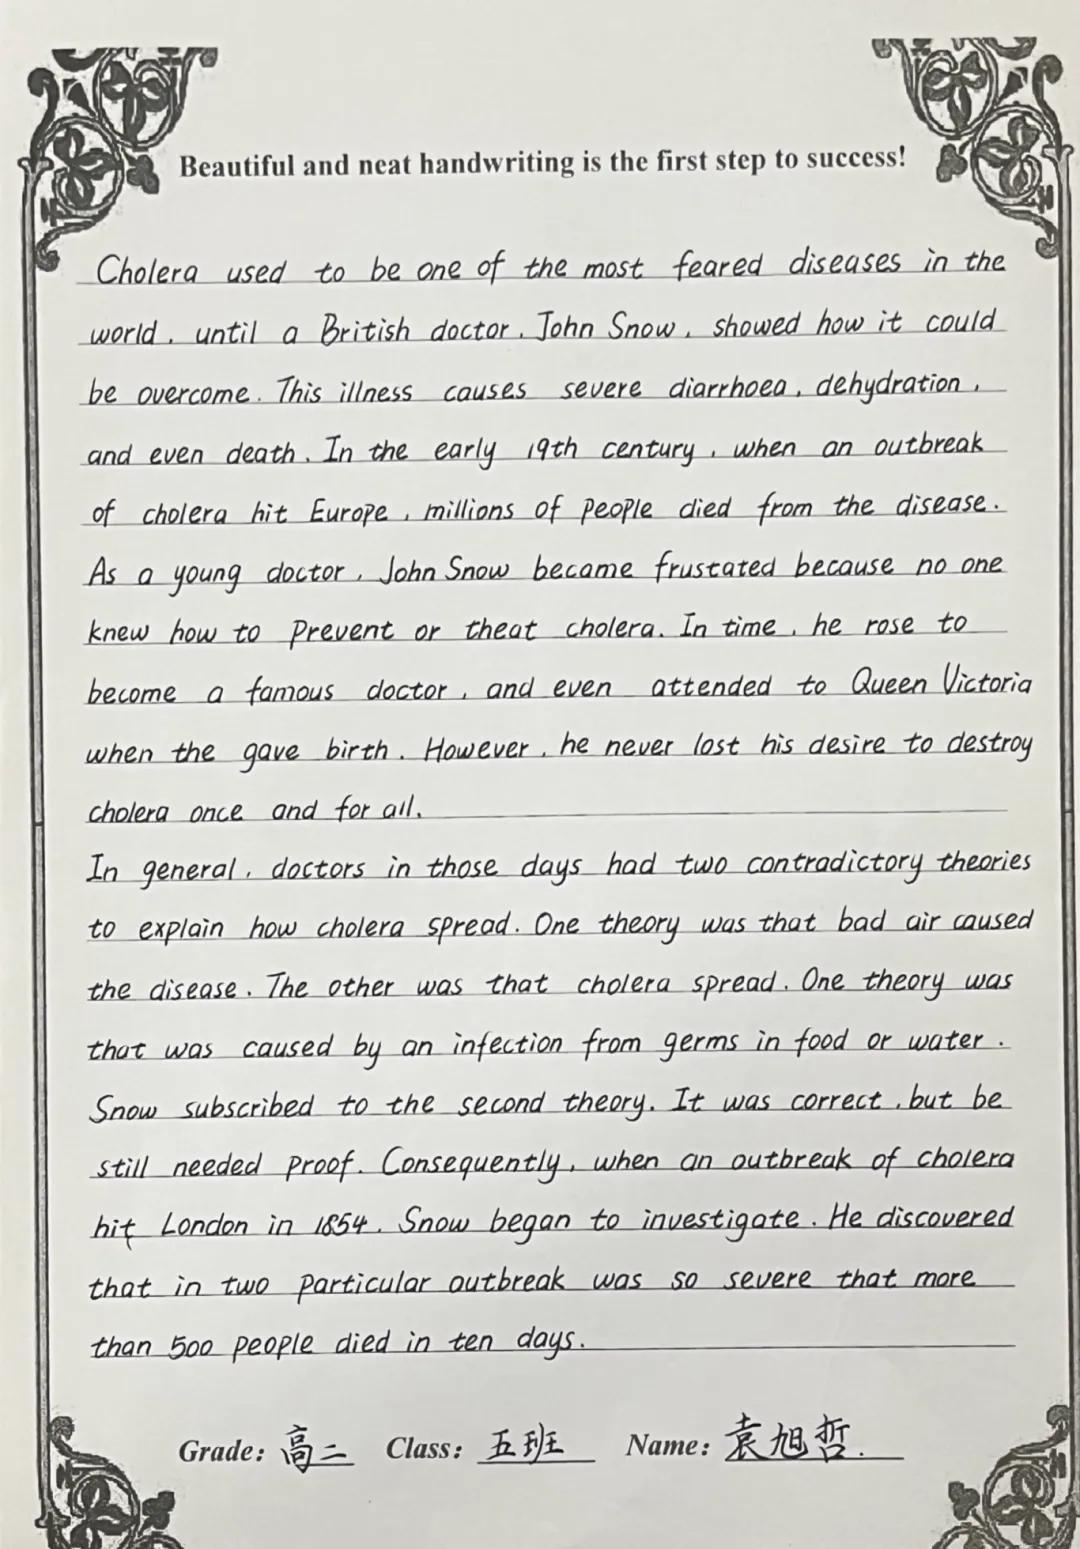 Beautiful and neat handwriting is the first step to success!
Cholera used to be one of the most feared diseases in the
world, until a British doctor, John Snow, showed how it could
be overcome. This illness causes severe diarrhoea, dehydration,
and even death. In the early 19th century, when an outbreak
of cholera hit Europe, millions of people died from the disease.
As a young doctor, John Snow became frustated because no one
knew how to prevent or theat cholera. In time, he rose to
become a famous doctor, and even attended to Queen Victoria
when the gave birth. However, he never lost his desire to destroy
cholera once and for all.
In general, doctors in those days had two contradictory theories
to explain how cholera spread. One theory was that bad air caused
the disease. The other was that cholera spread. One theory was
that was caused by an infection from germs in food or water.
Snow subscribed to the second theory. It was correct, but be
still needed proof. Consequently, when an outbreak of cholera
hit London in 1854, Snow began to investigate. He discovered
that in two particular outbreak was so severe that more
than 500 people died in ten days.
Grade: 高二 Class: 五班 Name: 袁旭哲.